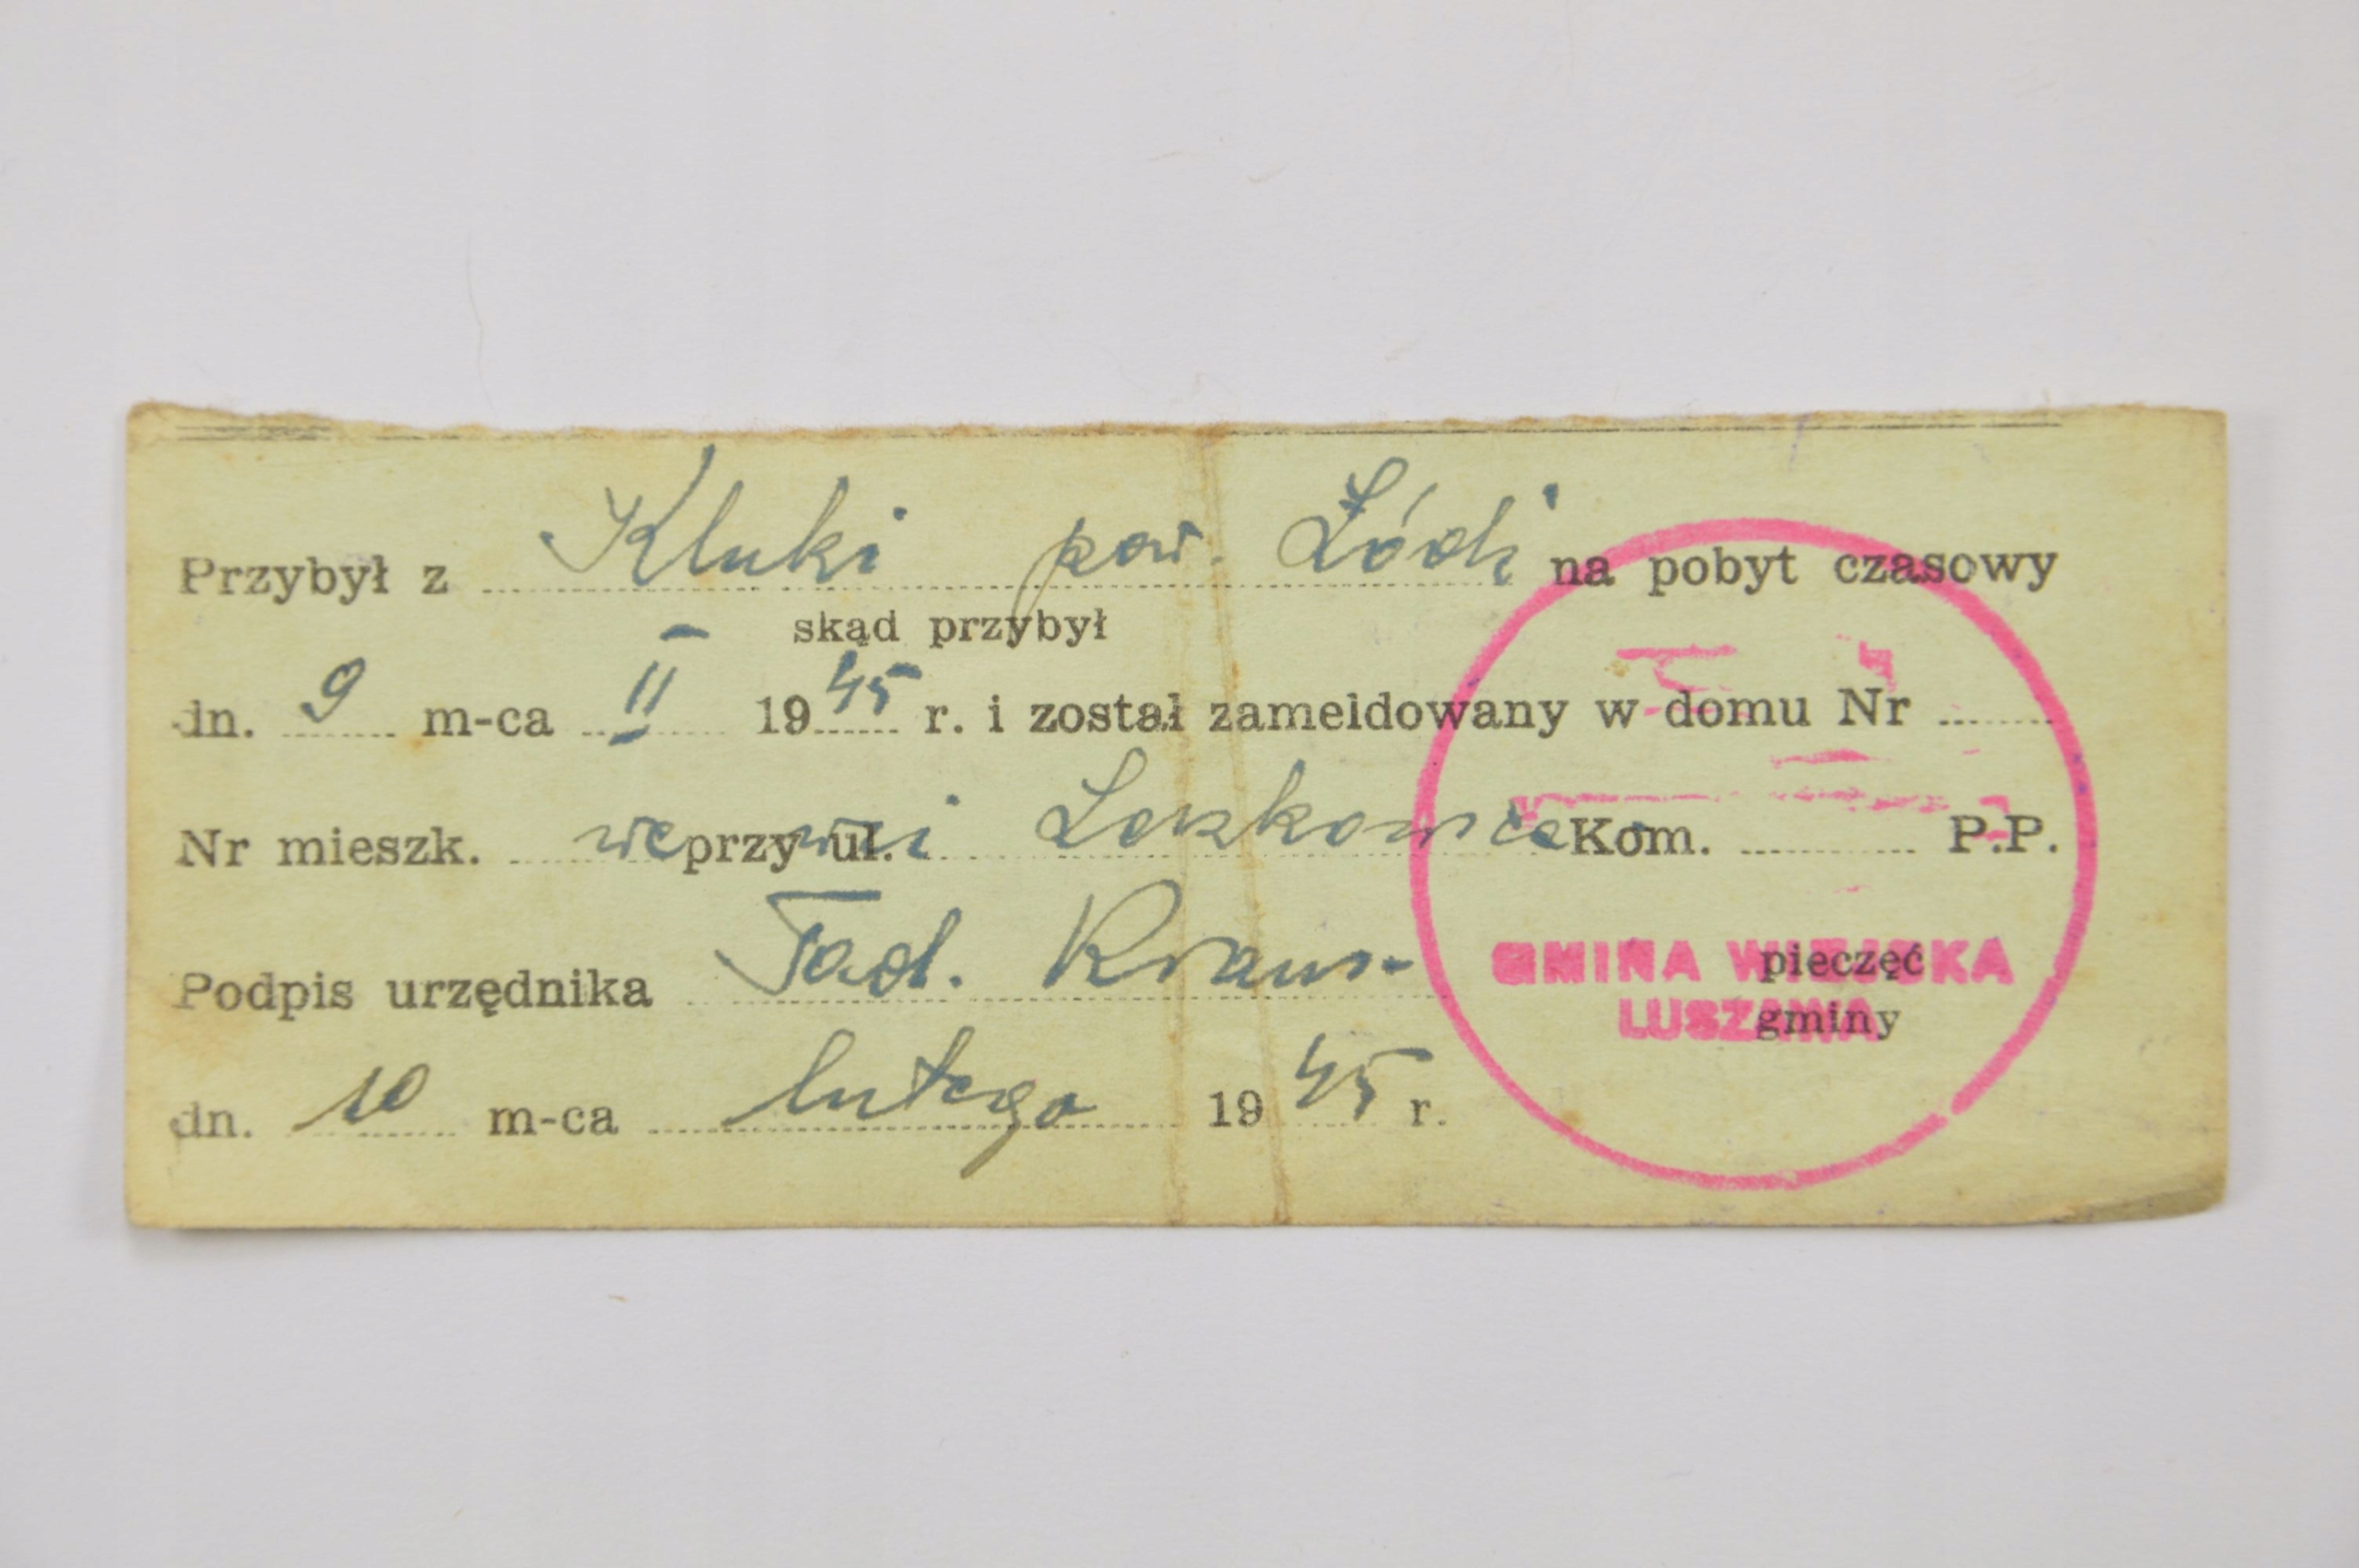 Przybył z Kluki pow. Łódź na pobyt czasowy
skąd przybył
dn. 9 m-ca II 1945 r. i został zameldowany w domu Nr
Nr mieszk. we przy ul. wsi Kom. P.P.
Podpis urzędnika Tad.
pieczęć
gminy
GMINA WIEJSKA
dn. 10 m-ca lutego 1945 r.